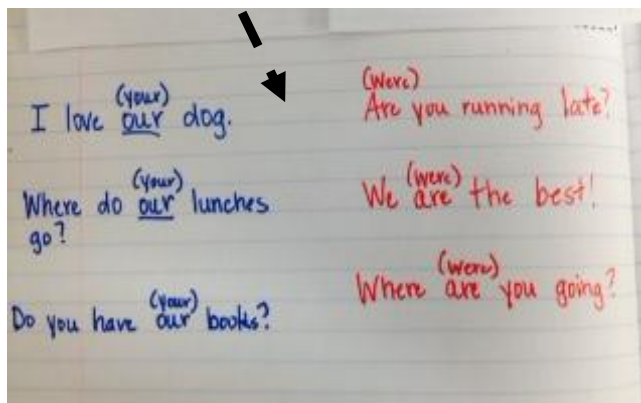 (your)
I love our dog.
(your)
Where do our lunches
go?
(your)
Do you have our books?
(were)
Are you running late?
(were)
We are the best!
(were)
Where are you going?